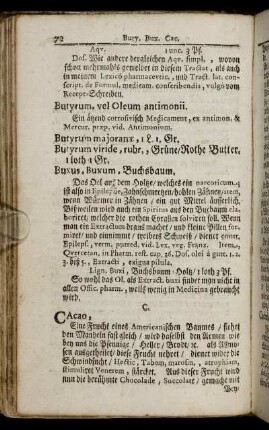 72 Buty. Bux. Cac.
Aqv. 1 unc. 3 Pf.
Dos. Wie andere dergleichen Aqv. simpl. , wovon
schon mehrmahls gemeldet in diesem Tractat, als auch
in meinem Lexicô pharmacevtic. und Tract. lat. con-
script. de Formul. medicam. conscribendis, vulgò vom
Recept-Schreiben.
Butyrum, vel Oleum antimonii.
Ein ätzend corrosivisch Medicament, ex antimon. &
Mercur. præp. vid. Antimonium.
Butyrum majoranæ, 1 L. 1 Gr.
Butyrum viride, rubr., Grüne/Rothe Butter,
1 loth 1 Gr.
Buxus, Buxum, Buchsbaum.
Das Oel auß dem Holtze/ welches ein narcoticum,
ist also in Epilepsie, Zahnschmertzen, hohlen Zähnen/
wenn Würmer in Zähnen / ein gut Mittel äusserlich.
Bißweilen wird auch ein Spiritus aus den Buxbaum
boriret, welcher die rothen Corallen solviren soll. Wenn
man ein Extractum draus machet / und kleine Pillen for-
miret/ und einnimmt / treibets Schweiß / dienet contr.
Epileps., verm. putred. vid. Lex. veg. Franz.
Qvercetan. in Pharm. ref. cap. 26. Dos. olei â gutt. 1. 2.
3. biß 5., Extracti , exigua pilula.
Lign. Buxi, Buchsbaum-Holtz/ 1 loth 3 Pf.
So wohl das Ol. als Extract. buxi findet man nicht in
allen Offic. pharm., weils wenig in Medicina gebraucht
wird.
C.
CAcao,
Eine Frucht eines Americanischen Baumes / siehet
den Mandeln fast gleich / wird daselbst den Armen wie
bey uns die Pfennige / Heller / Brodt/ &c. als Allmo-
sen ausgetheilet/ diese Frucht nehret / dienet wider die
Schwindsucht / Hectic, Tabem, marasm., atrophiam,
stimuliret Venerem, stärcket. Aus dieser Frucht wird
nun die berühmte Chocolade , Succolat / gemacht mit